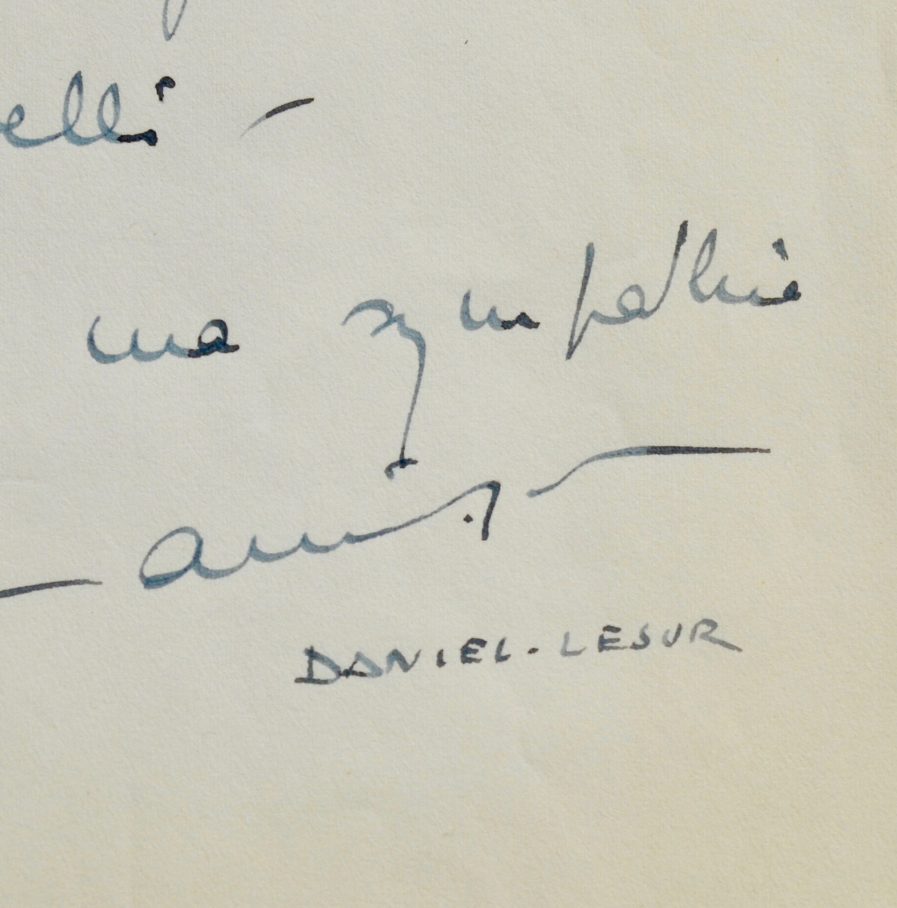 elli —
ma sympathie
DANIEL-LESUR